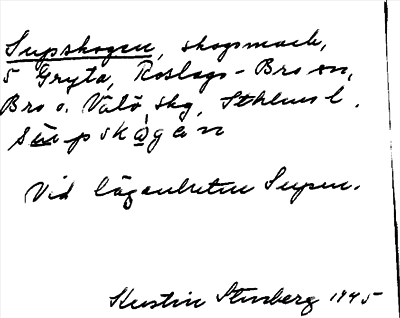 Supskogen, skogsmark,
5 Gryta, Roslags-Bro sn,
Bro o. Vätö skg, Sthlms l.
supskogen
Vid lägenheten Supen.
Kerstin Stenberg 1945